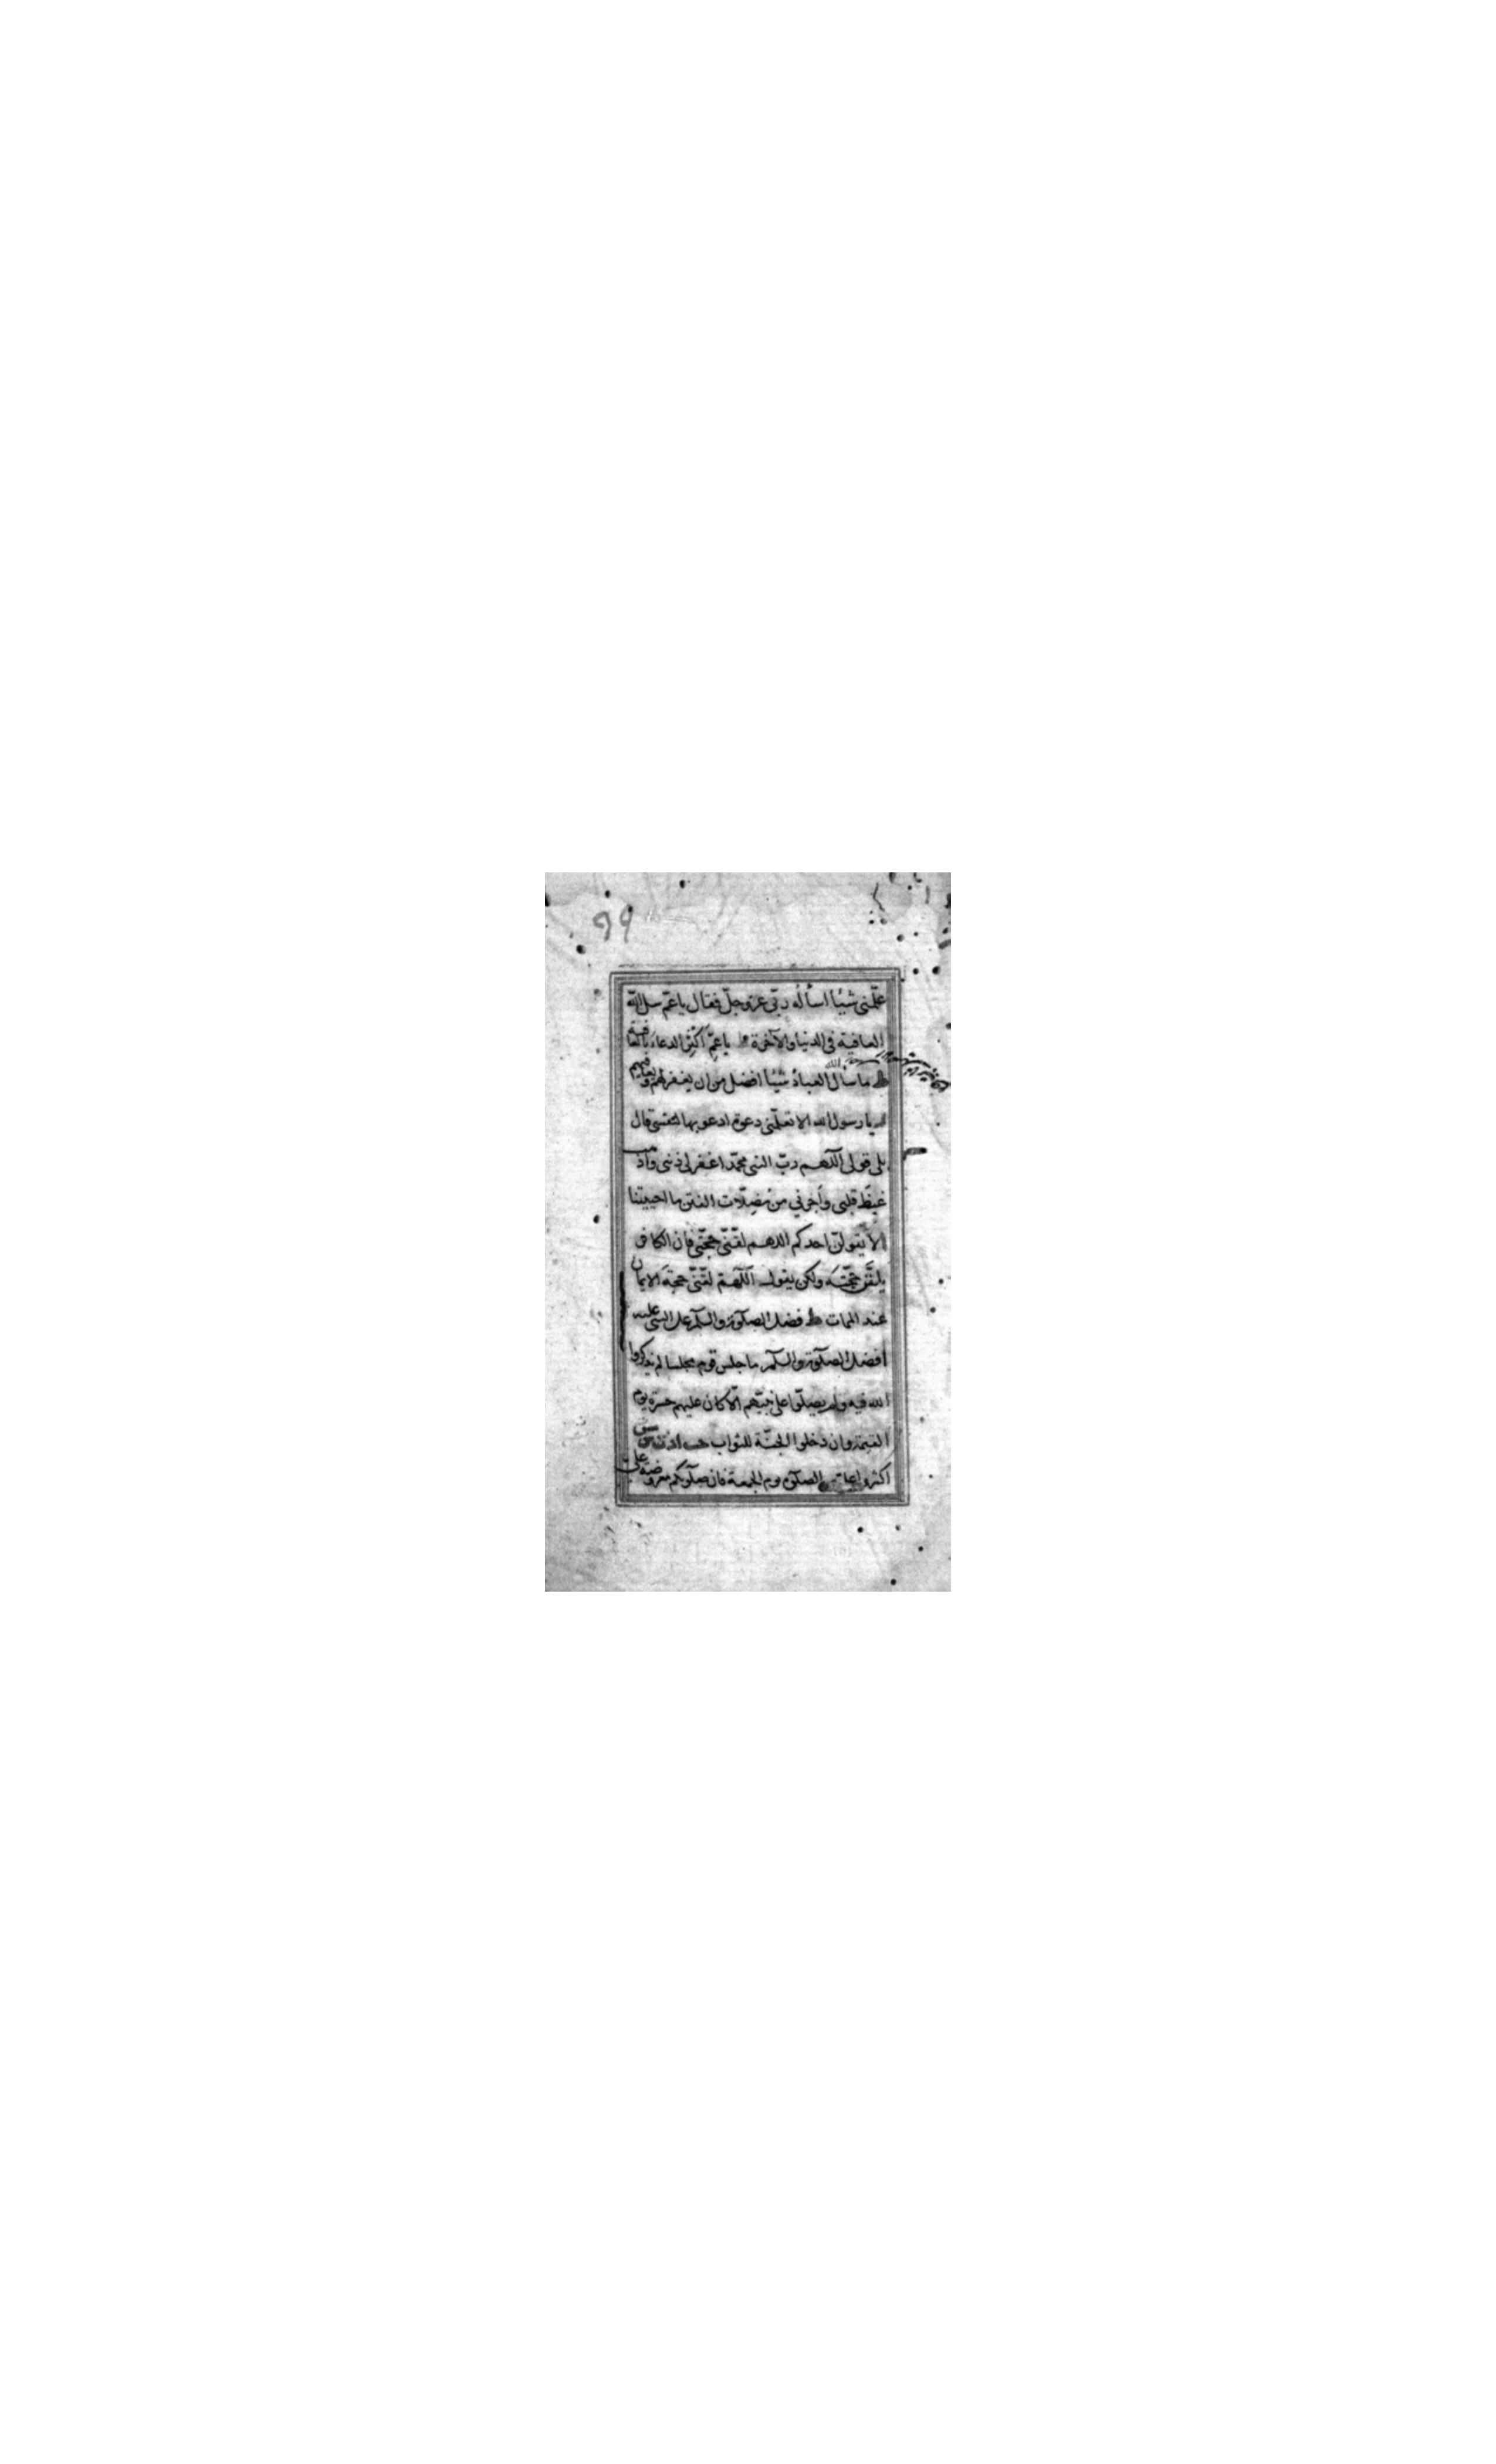 ٩٩
علّمنى شيئا اسأله ربّى عزّ وجلّ فقال يا عمّ سل الله
العافية فى الدنيا والآخرة ط يا عمّ اكثر الدعاء بالعافية
ط ما سأل الله العباد شيئا افضل من ان يغفر لهم ويعافيهم
يا رسول الله الا تعلّمنى دعوة ادعو بها لنفسى قال
بلى قولى اللهم ربّ النبى محمّد اغفر لى ذنبى واذهب
غيظ قلبى وأجرنى من مضلّات الفتن ما احييتنا
لا يقولنّ احدكم اللهم لقّنّى حجّتى فان الكافر
يلقّن حجّته ولكن يقول اللّهمّ لقّنّى حجّة الايمان
عند الممات ط فضل الصلوة والسلام على النبى عليه
افضل الصلوة والسلام ما جلس قوم مجلسا لم يذكروا
الله فيه ولم يصلّوا على نبيّهم الّا كان عليهم حسرة يوم
القيمة وان دخلوا الجنّة للثواب حب اد ت س مس
اكثروا علىّ الصلوة يوم الجمعة فان صلوتكم معروضة علىّ